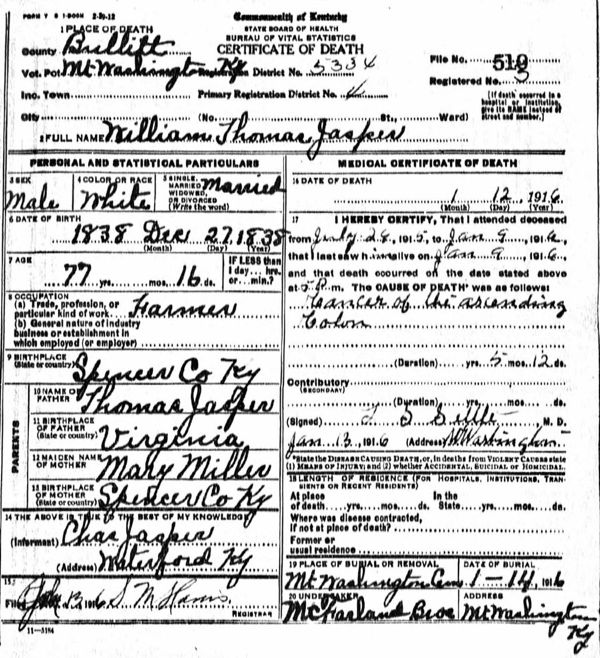 FORM V S 1-500M 2-20-12
Commonwealth of Kentucky
STATE BOARD OF HEALTH
BUREAU OF VITAL STATISTICS
CERTIFICATE OF DEATH
1 PLACE OF DEATH
County Bullitt
Vot. Pct. Mt Washington Ky Registration District No. 5334
File No. 519
Registered No. 3
Inc. Town Primary Registration District No. 4
[If death occurred in a hospital or institution, give its NAME instead of street and number.]
City (No. St., Ward)
2 FULL NAME William Thomas Jasper
PERSONAL AND STATISTICAL PARTICULARS
3 SEX
Male
4 COLOR OR RACE
White
5 SINGLE, MARRIED, WIDOWED, OR DIVORCED (Write the word)
Married
6 DATE OF BIRTH
1838 Dec 27, 1838
(Month) (Day) (Year)
7 AGE
77 yrs. mos. 16 ds.
IF LESS than 1 day... hrs. or... min.?
8 OCCUPATION
(a) Trade, profession, or particular kind of work Farmer
(b) General nature of industry business or establishment in which employed (or employer)
9 BIRTHPLACE
(State or country) Spencer Co Ky
PARENTS
10 NAME OF FATHER Thomas Jasper
11 BIRTHPLACE OF FATHER (State or country) Virginia
12 MAIDEN NAME OF MOTHER Mary Miller
13 BIRTHPLACE OF MOTHER (State or country) Spencer Co Ky
14 THE ABOVE IS TRUE TO THE BEST OF MY KNOWLEDGE
(Informant) Chas Jasper
(Address) Waterford Ky
15
Filed 13, 1916 S. M. REGISTRAR
11-3184
MEDICAL CERTIFICATE OF DEATH
16 DATE OF DEATH
1 12, 1916
(Month) (Day) (Year)
17 I HEREBY CERTIFY, That I attended deceased
from July 28, 1915, to Jan 9, 1916,
that I last saw him alive on Jan 9, 1916,
and that death occurred on the date stated above
at 5 P. m. The CAUSE OF DEATH* was as follows:
Cancer of the ascending
Colon
(Duration) yrs. 5 mos. 12 ds.
Contributory
(SECONDARY)
(Duration) yrs. mos. ds.
(Signed) M. D.
Jan 13, 1916 (Address) Mt Washington
*State the DISEASE CAUSING DEATH, or, in deaths from VIOLENT CAUSES state (1) MEANS OF INJURY; and (2) whether ACCIDENTAL, SUICIDAL or HOMICIDAL.
18 LENGTH OF RESIDENCE (FOR HOSPITALS, INSTITUTIONS, TRANSIENTS OR RECENT RESIDENTS)
At place of death yrs. mos. ds. In the State yrs. mos. ds.
Where was disease contracted, if not at place of death?
Former or usual residence
19 PLACE OF BURIAL OR REMOVAL
Mt Washington Cem
DATE OF BURIAL
1-14, 1916
20 UNDERTAKER
McFarland Bros
ADDRESS
Mt Washington Ky